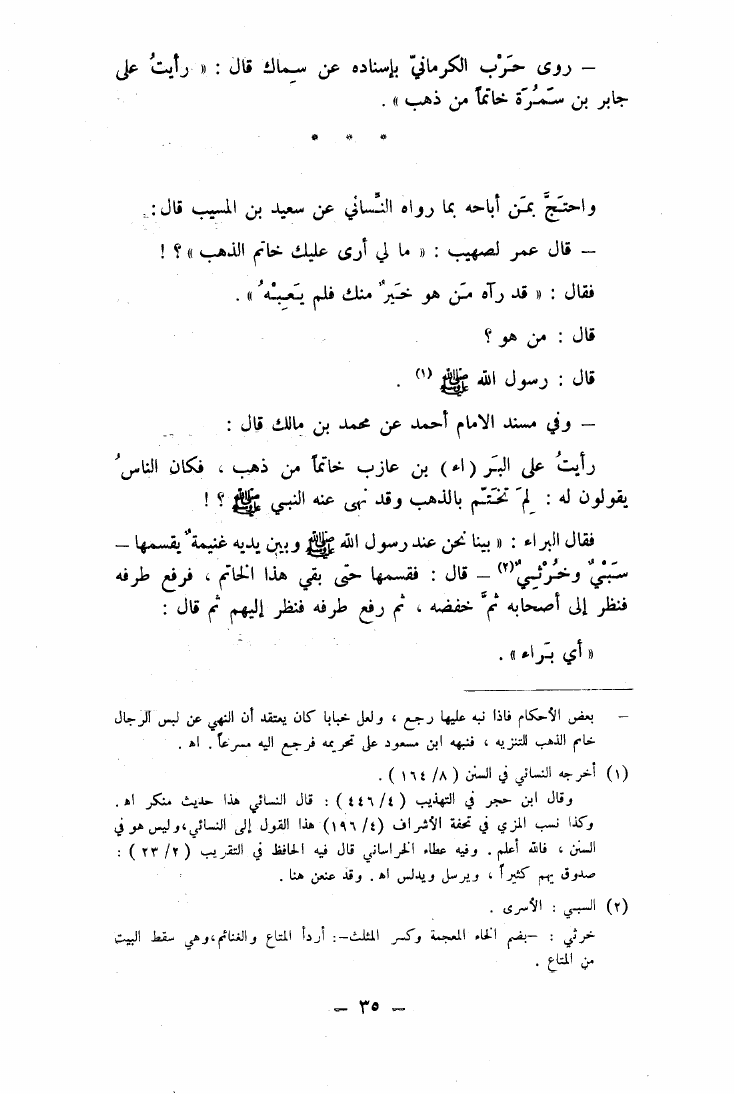 – روى حَرْب الكرمانيّ بإسناده عن سِماك قال : « رأيتُ على
جابر بن سَمُرَة خاتماً من ذهب » .
* * *
واحتَجَّ بمَن أباحه بما رواه النَّسائي عن سعيد بن المسيب قال :
– قال عمر لصهيب : « ما لي أرى عليك خاتم الذهب » ؟ !
فقال : « قد رآه مَن هو خَيرٌ منك فلم يَعِبْهُ » .
قال : من هو ؟
قال : رسول الله ﷺ (١) .
– وفي مسند الامام أحمد عن محمد بن مالك قال :
رأيتُ على البَر (اء) بن عازب خاتماً من ذهب ، فكان الناسُ
يقولون له : لِمَ تَخَتَّم بالذهب وقد نهى عنه النبي ﷺ ؟ !
فقال البراء : « بينا نحن عند رسول الله ﷺ وبين يديه غنيمةٌ يقسمها –
سَبْيٌ وخُرْثِيٌ (٢) – قال : فقسمها حتى بقي هذا الخاتم ، فرفع طرفه
فنظر إلى أصحابه ثمَّ خفضه ، ثم رفع طرفه فنظر إليهم ثم قال :
« أي بَراء » .
– بعض الأحكام فاذا نبه عليها رجع ، ولعل خبابا كان يعتقد أن النهي عن لبس الرجال
خاتم الذهب للتنزيه ، فنبهه ابن مسعود على تحريمه فرجع اليه مسرعاً . اه .
(١) أخرجه النسائي في السنن ( ٨/ ١٦٤ ) .
وقال ابن حجر في التهذيب ( ٤/ ٤٤٦ ) : قال النسائي هذا حديث منكر اه .
وكذا نسب المزي في تحفة الأشراف (٤/ ١٩٦) هذا القول إلى النسائي،وليس هو في
السنن ، فالله أعلم . وفيه عطاء الخراساني قال فيه الحافظ في التقريب ( ٢/ ٢٣ ) :
صدوق يهم كثيراً ، ويرسل ويدلس اه . وقد عنعن هنا .
(٢) السبي : الأسرى .
خرثي : –بضم الخاء المعجمة وكسر المثلث–: أردأ المتاع والغنائم،وهي سقط البيت
من المتاع .
– ٣٥ –